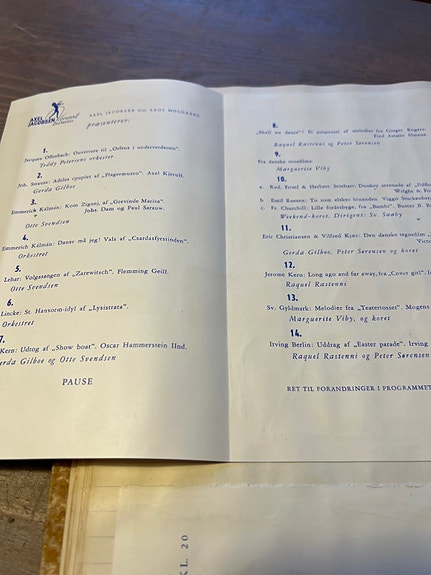 AXEL
JACOBSEN
AXEL JACOBSEN OG AAGE HOLDGAARD
præsenterer:
1.
Jacques Offenbach: Ouverture til „Orfeus i underverdenen".
Teddy Petersens orkester
2.
Joh. Strauss: Adeles couplet af „Flagermusen". Axel Kjerulf.
Gerda Gilboe
3.
Emmerick Kálmán: Kom Zigøj, af „Grevinde Mariza"
Johs. Dam og Paul Sarauw.
Otto Svendsen
4.
Emmerick Kálmán: Danse må jeg! Vals af „Csardasfyrstinden".
Orkestret
5.
Lehar: Volgasangen af „Zarewitsch". Flemming Geill.
Otto Svendsen
6.
Lincke: St. Hansorm-idyl af „Lysistrata".
Orkestret
7.
Kern: Udtog af „Show boat". Oscar Hammerstein IInd.
Gerda Gilboe og Otto Svendsen
PAUSE
8.
„Shall we dance"! Et potpourri af melodier fra Ginger Rogers-
Fred Astaire filmene.
Raquel Rastenni og Peter Sørensen
9.
Fra danske tonefilm
Marguerite Viby
10.
a. Rud. Friml & Herbert Stothart: Donkey serenade af
Wright &
b. Emil Reesen: To som elsker hinanden. Viggo
c. Fr. Churchill: Lille forårsbyge, fra „Bambi".
Weekend-koret. Dirigent: Sv. Saaby
11.
Eric Christiansen & Vilfred Kjær: Den danske
Gerda Gilboe, Peter Sørensen og koret
12.
Jerome Kern: Long ago and far away, fra „Cover girl".
Raquel Rastenni
13.
Sv. Gyldmark: Melodier fra „Teatertosset". Mogens
Marguerite Viby, og koret
14.
Irving Berlin: Uddrag af „Easter parade". Irving
Raquel Rastenni og Peter Sørensen
RET TIL FORANDRINGER I PROGRAMMET
KL. 20